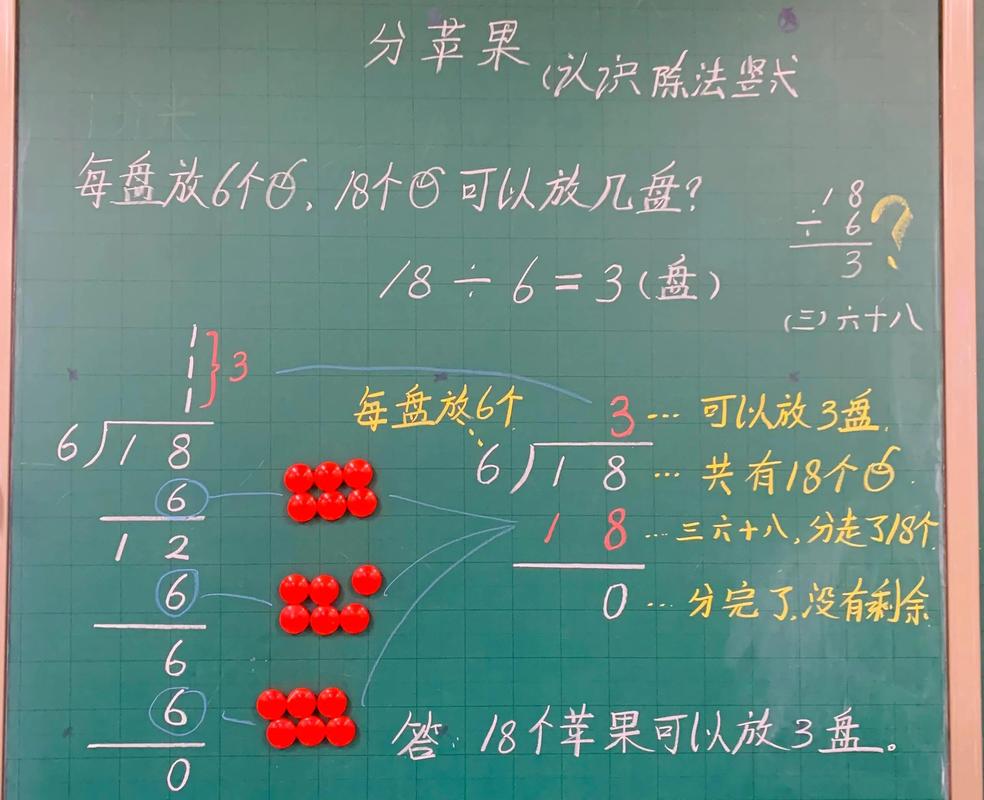 分苹果
(认识除法竖式
每盘放6个、18个可以放几盘?
18÷6=3(盘)
18
÷6
3
?
(三)六十八
1
1
1
}3
6)18
6
12
6
6
6
0
每盘放6个
3…可以放3盘.
6)18…共有18个
18…三六十八,分走了18个
0…分完了,没有剩余.
答:18个苹果可以放3盘。